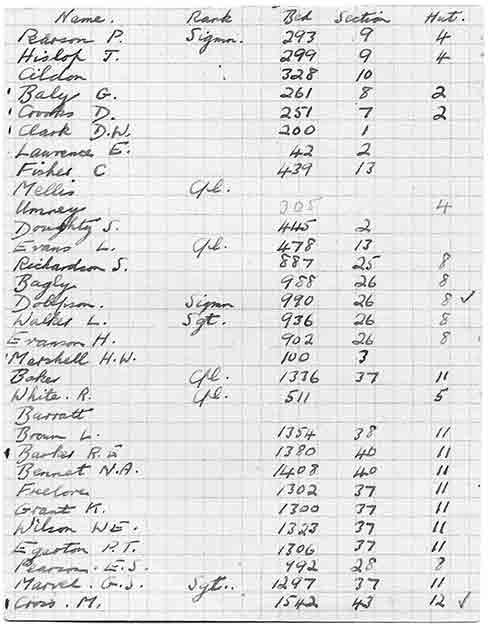 Name. Rank Bed Section Hut.
Pearson P. Sigmn. 293 9 4
Hislop J. 299 9 4
Cildon 328 10
Baly G. 261 8 2
Crooks D. 251 7 2
Clark D.W. 200 1
Lawrence E. 42 2
Fisher C 439 13
Mellis Cpl.
Umney 305 4
Doughty S. 445 2
Evans L. Cpl. 478 13
Richardson S. 887 25 8
Bagly 988 26 8
Sigmn 990 26 8 ✓
Walker L. Sgt. 936 26 8
Evanson H. 902 26 8
Marshell H.W. 100 3
Baker Cpl. 1336 37 11
White. R. Cpl. 511 5
Barratt
Brown L. 1354 38 11
Barker R. G 1380 40 11
Bennet N.A. 1408 40 11
Freelove 1302 37 11
Grant K. 1300 37 11
Wilson WE. 1323 37 11
Egerton P.T. 1306 37 11
Pearson. E.S. 992 28 8
Marvel. G.S. Sgt.. 1297 37 11
Cross. M. 1542 43 12 ✓